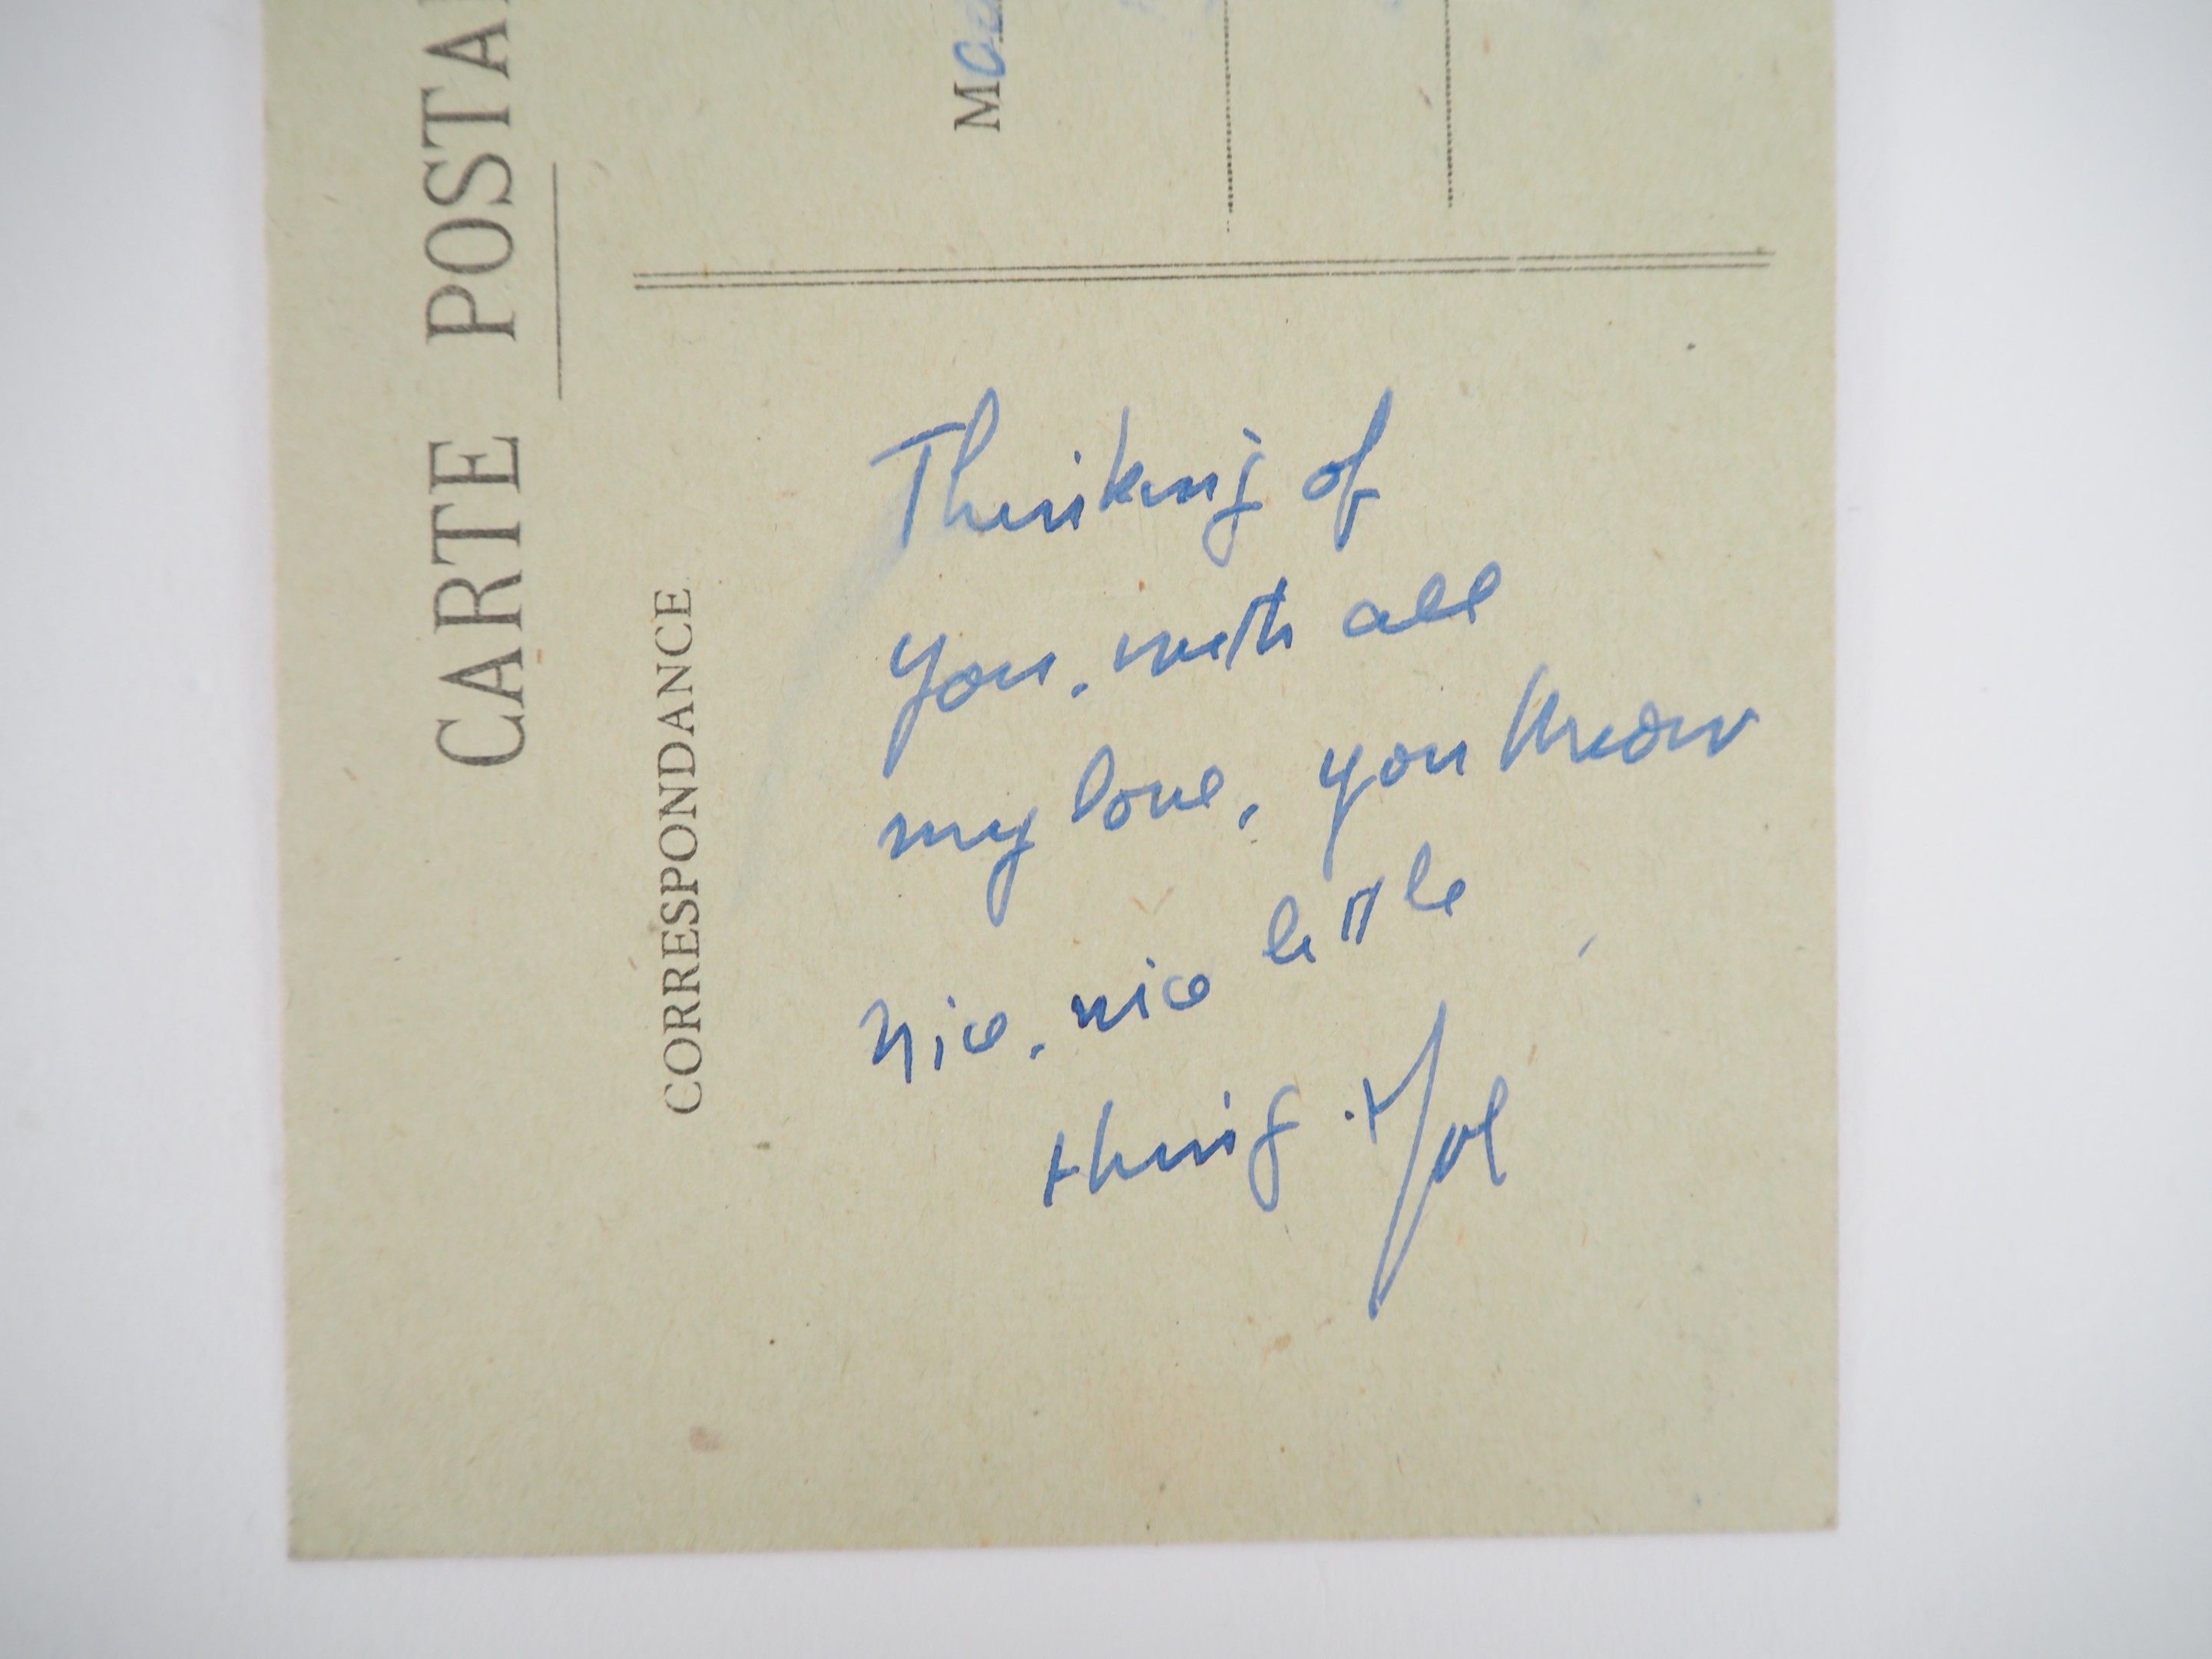 CARTE POSTA
CORRESPONDANCE
M
Thinking of
you, with all
my love, you know
nice, nice little
thing